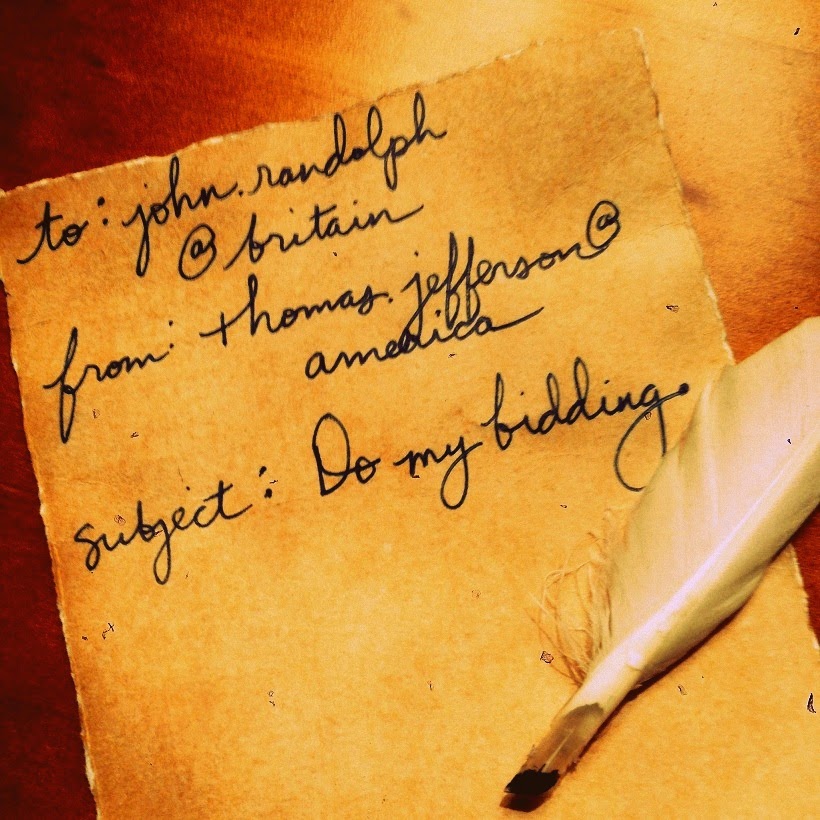 to: john.randolph
@ britain
from: thomas.jefferson@
america
subject: Do my bidding.